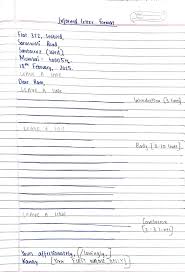 Informal Letter Format
Flat 312,
Saraswati Road,
Santacruz (West)
Mumbai - 400054.
18th February, 2025.
LEAVE A LINE
Dear Ram,
LEAVE A LINE
Introduction (3 lines)
LEAVE A LINE
Body (8-10 lines)
LEAVE A LINE
Conclusion
(2-3 lines)
Yours affectionately, / lovingly,
(Your FIRST NAME ONLY)